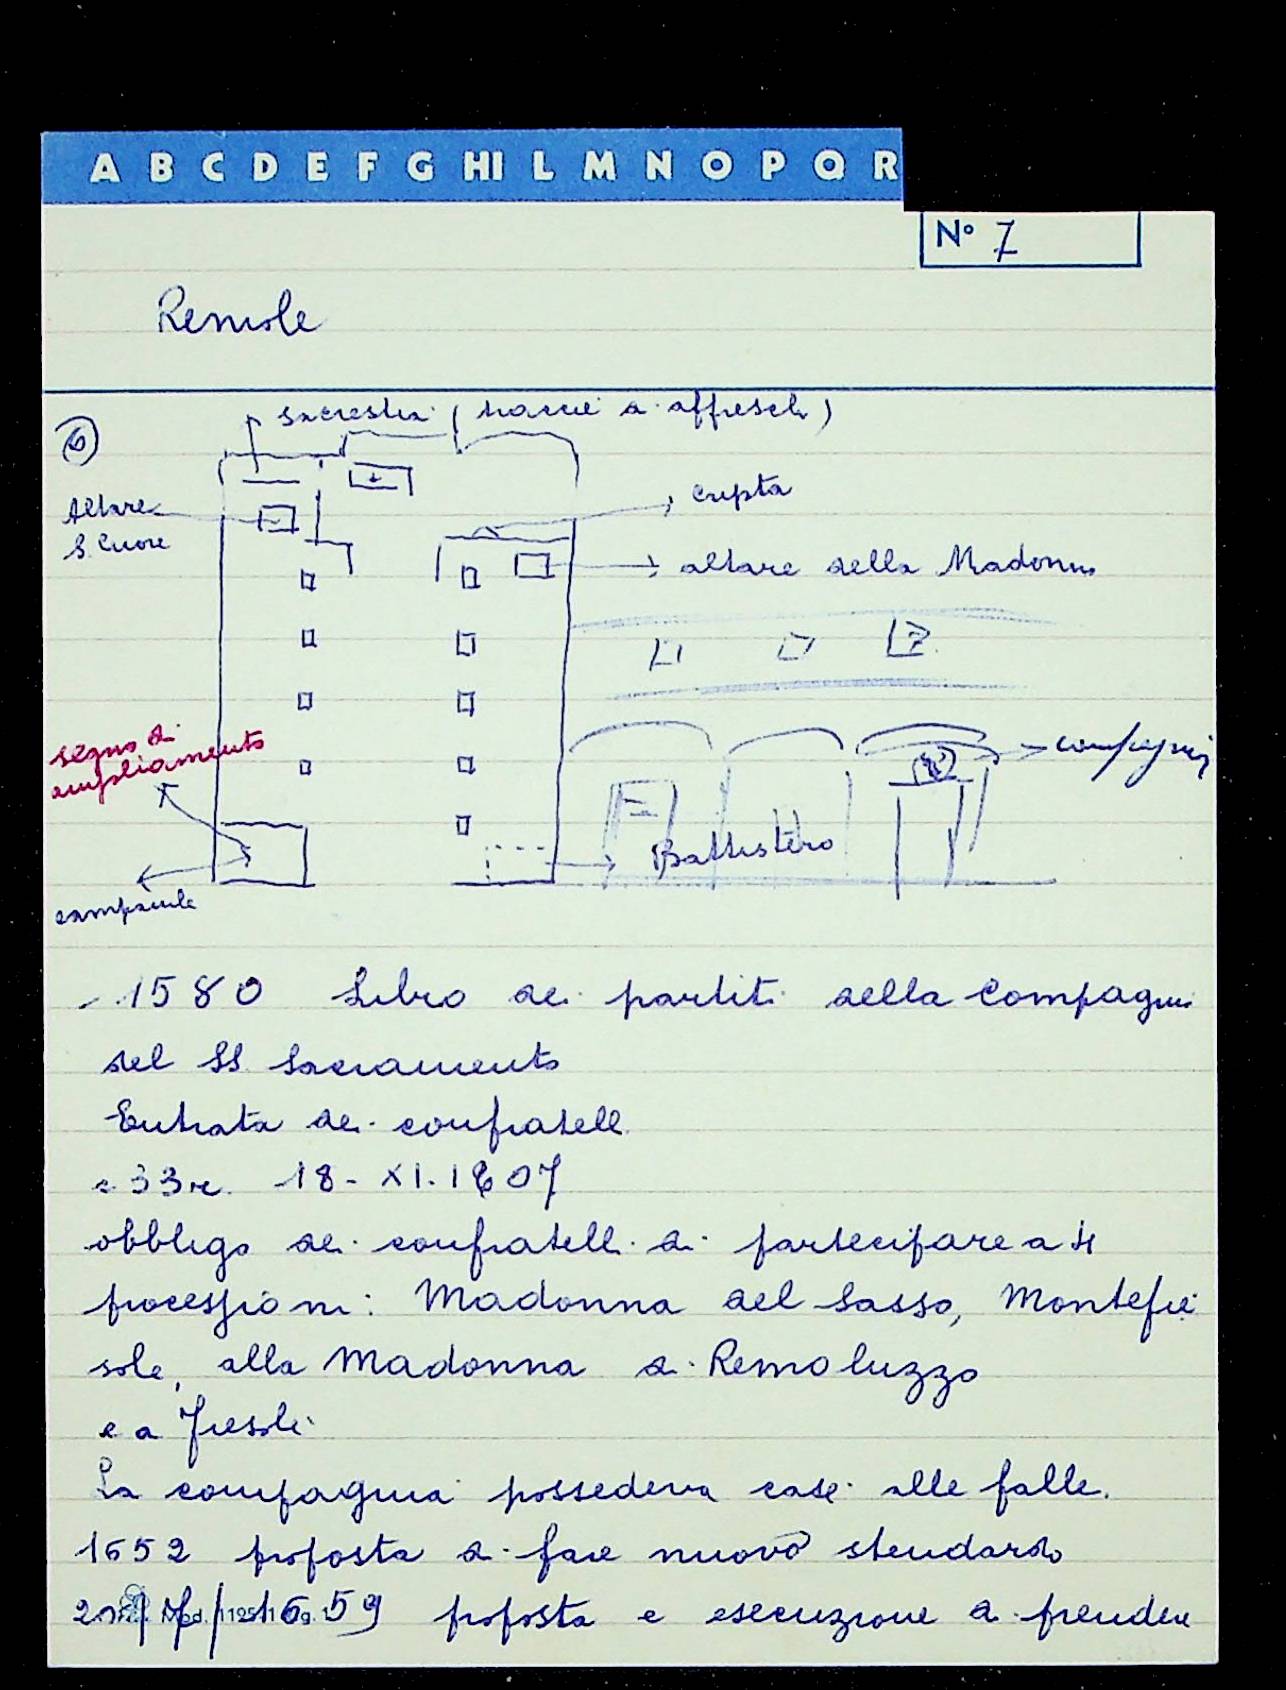 A B C D E F G HI L M N O P Q R
N° 7
Remole
6
sacrestia (tracce di affreschi)
Altare
S. Cuore
cripta
altare della Madonna
segno di
ampliamento
compagnia
Battistero
campanile
- 1580 Libro dei partiti della Compagnia
del SS. Sacramento
Entrata dei confratelli
c 33r. 18-XI-1607
obbligo dei confratelli di partecipare a 4
processioni: Madonna del Sasso, Montefie
sole, alla Madonna di Remoluzzo
e a Fiesole
La compagnia possedeva case alle falle.
1652 proposta di fare nuovo stendardo
1659 proposta e esecuzione di prendere